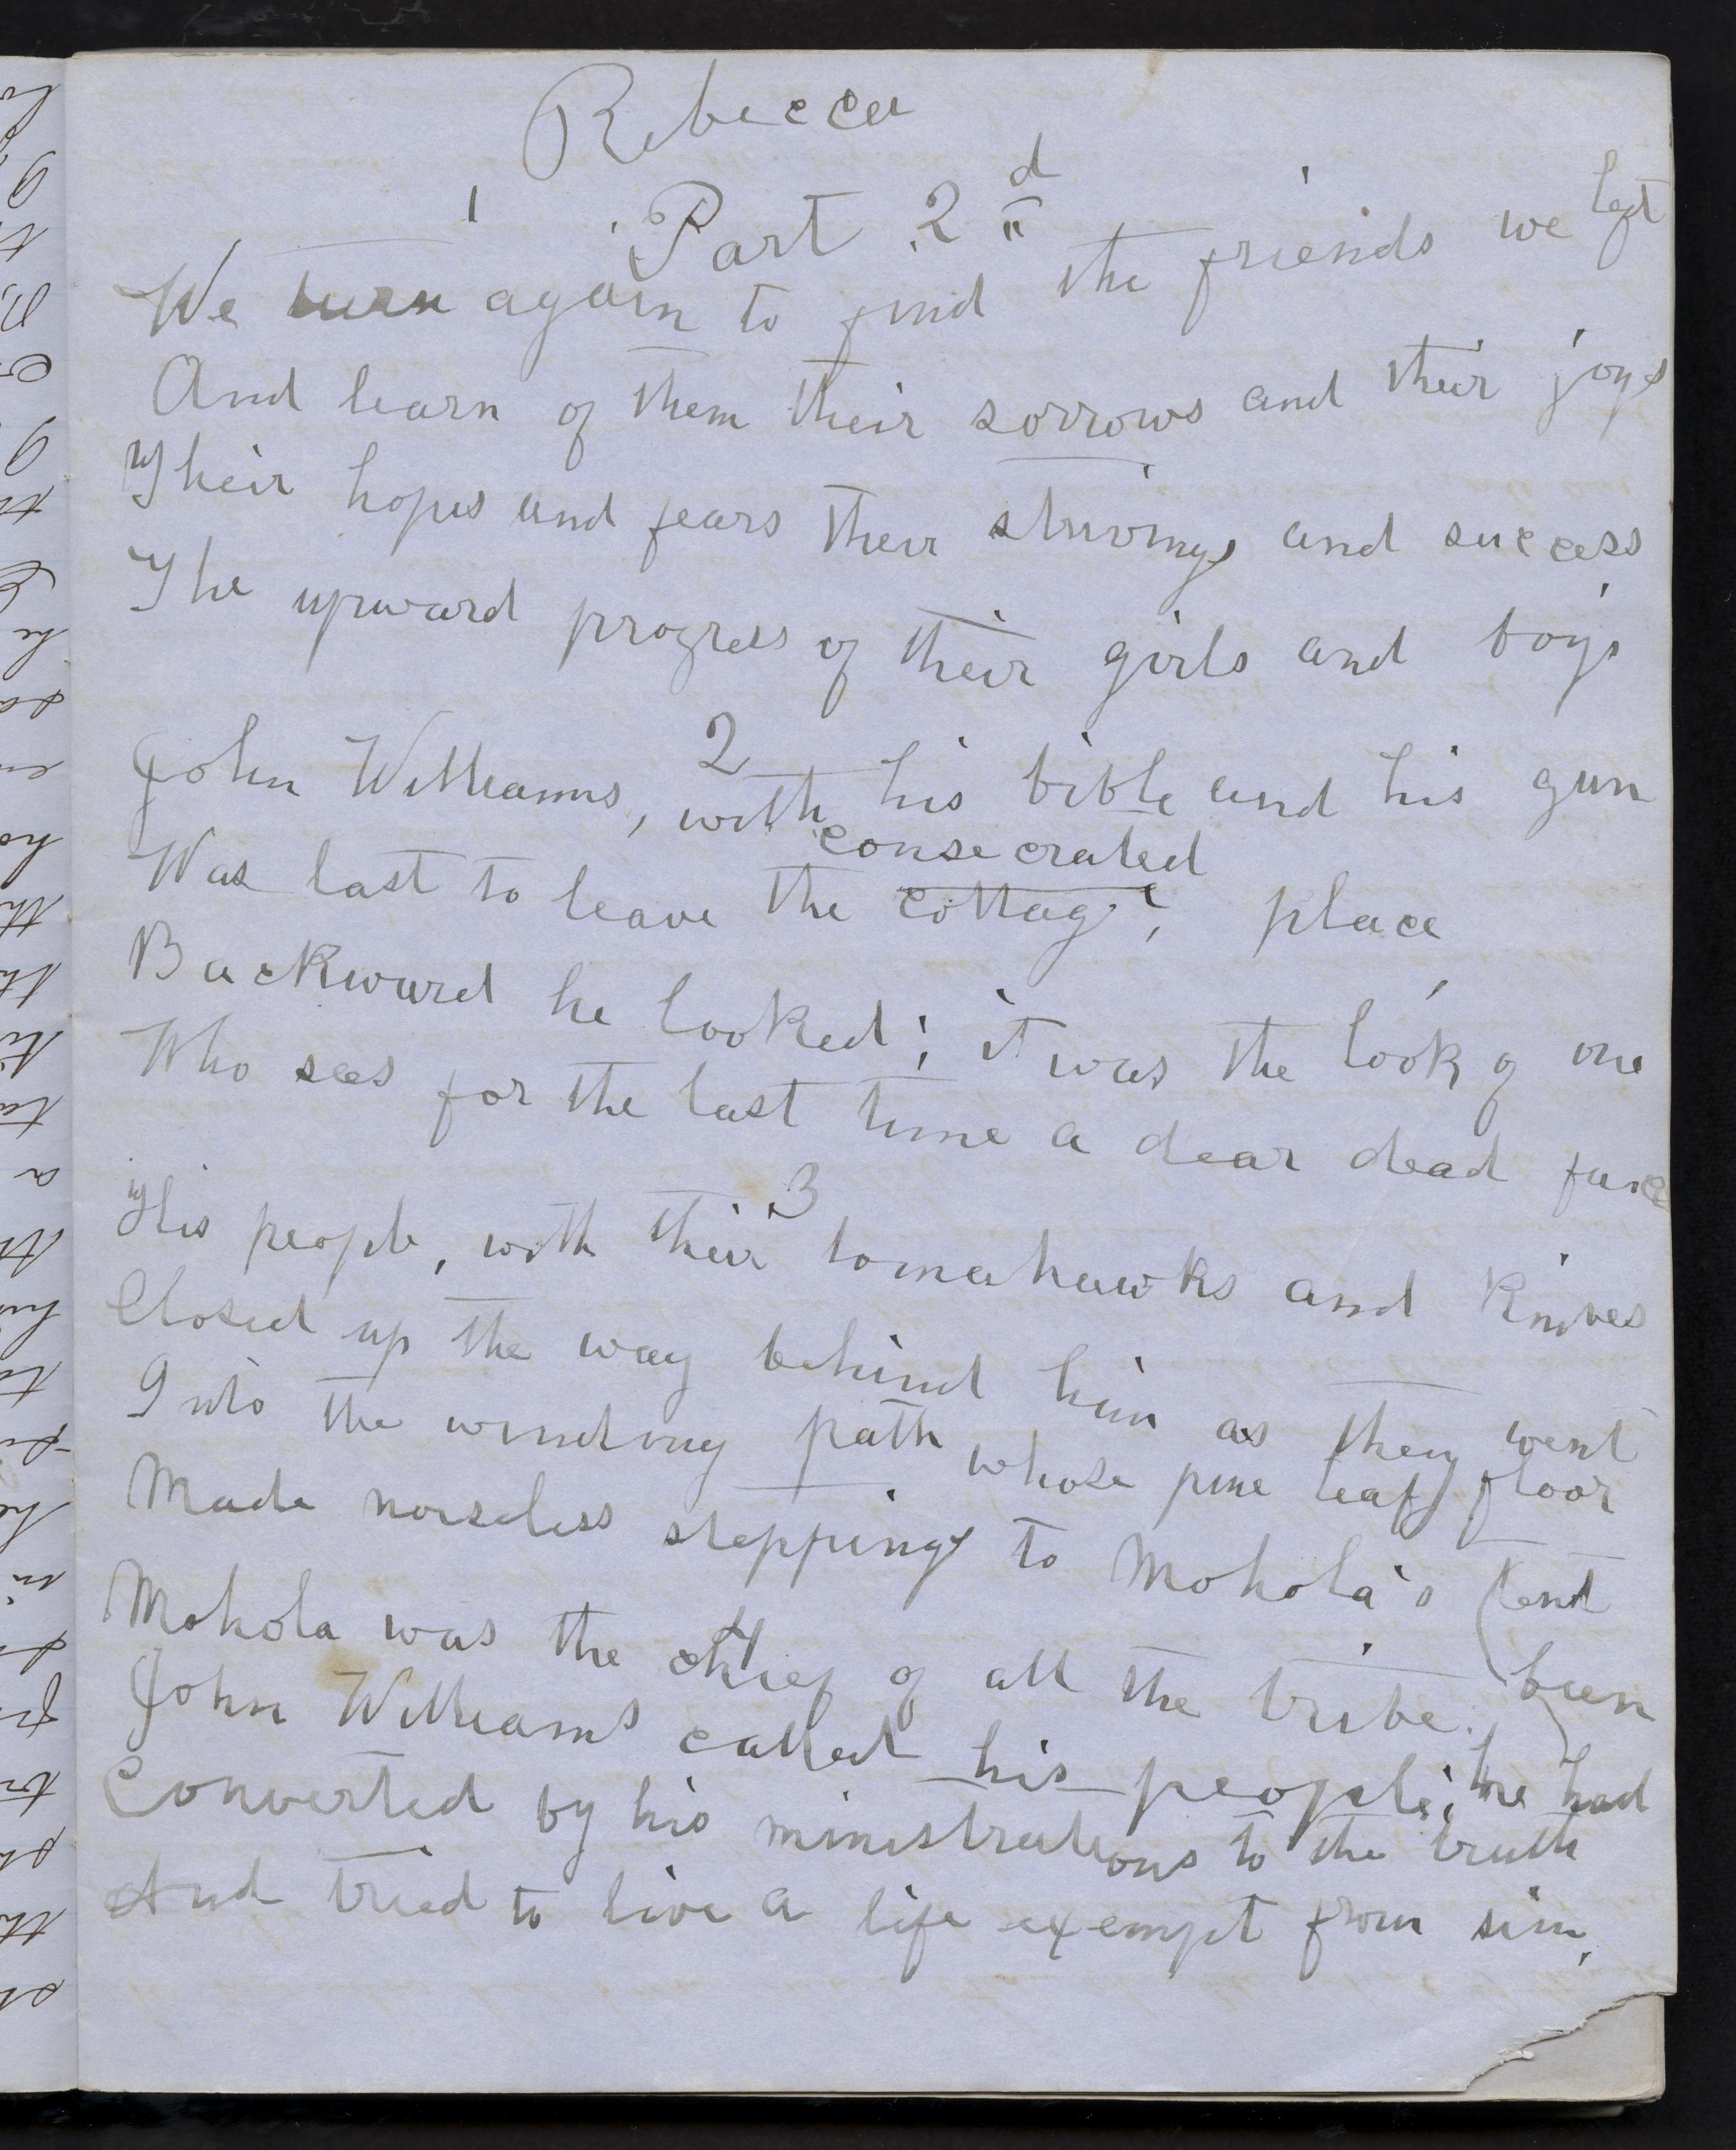 Rebecca
Part 2d
1
We turn again to find the friends we left
And learn of them their sorrows and their joys
Their hopes and fears their strivings and success
The upward progress of their girls and boys
2
John Williams, with his bible and his gun
consecrated
Was last to leave the cottage, place,
Backward he looked; it was the look of one
Who sees for the last time a dear dead face
3
His people, with their tomahawks and knives
Closed up the way behind him as they went
Into the winding path whose pine leaf floor
Made noiseless stepping to Mohola's tent
4
Mohola was the chief of all the tribe.
John Williams called his people; he had been
Converted by his ministrations to the truth
And tried to live a life exempt from sin,